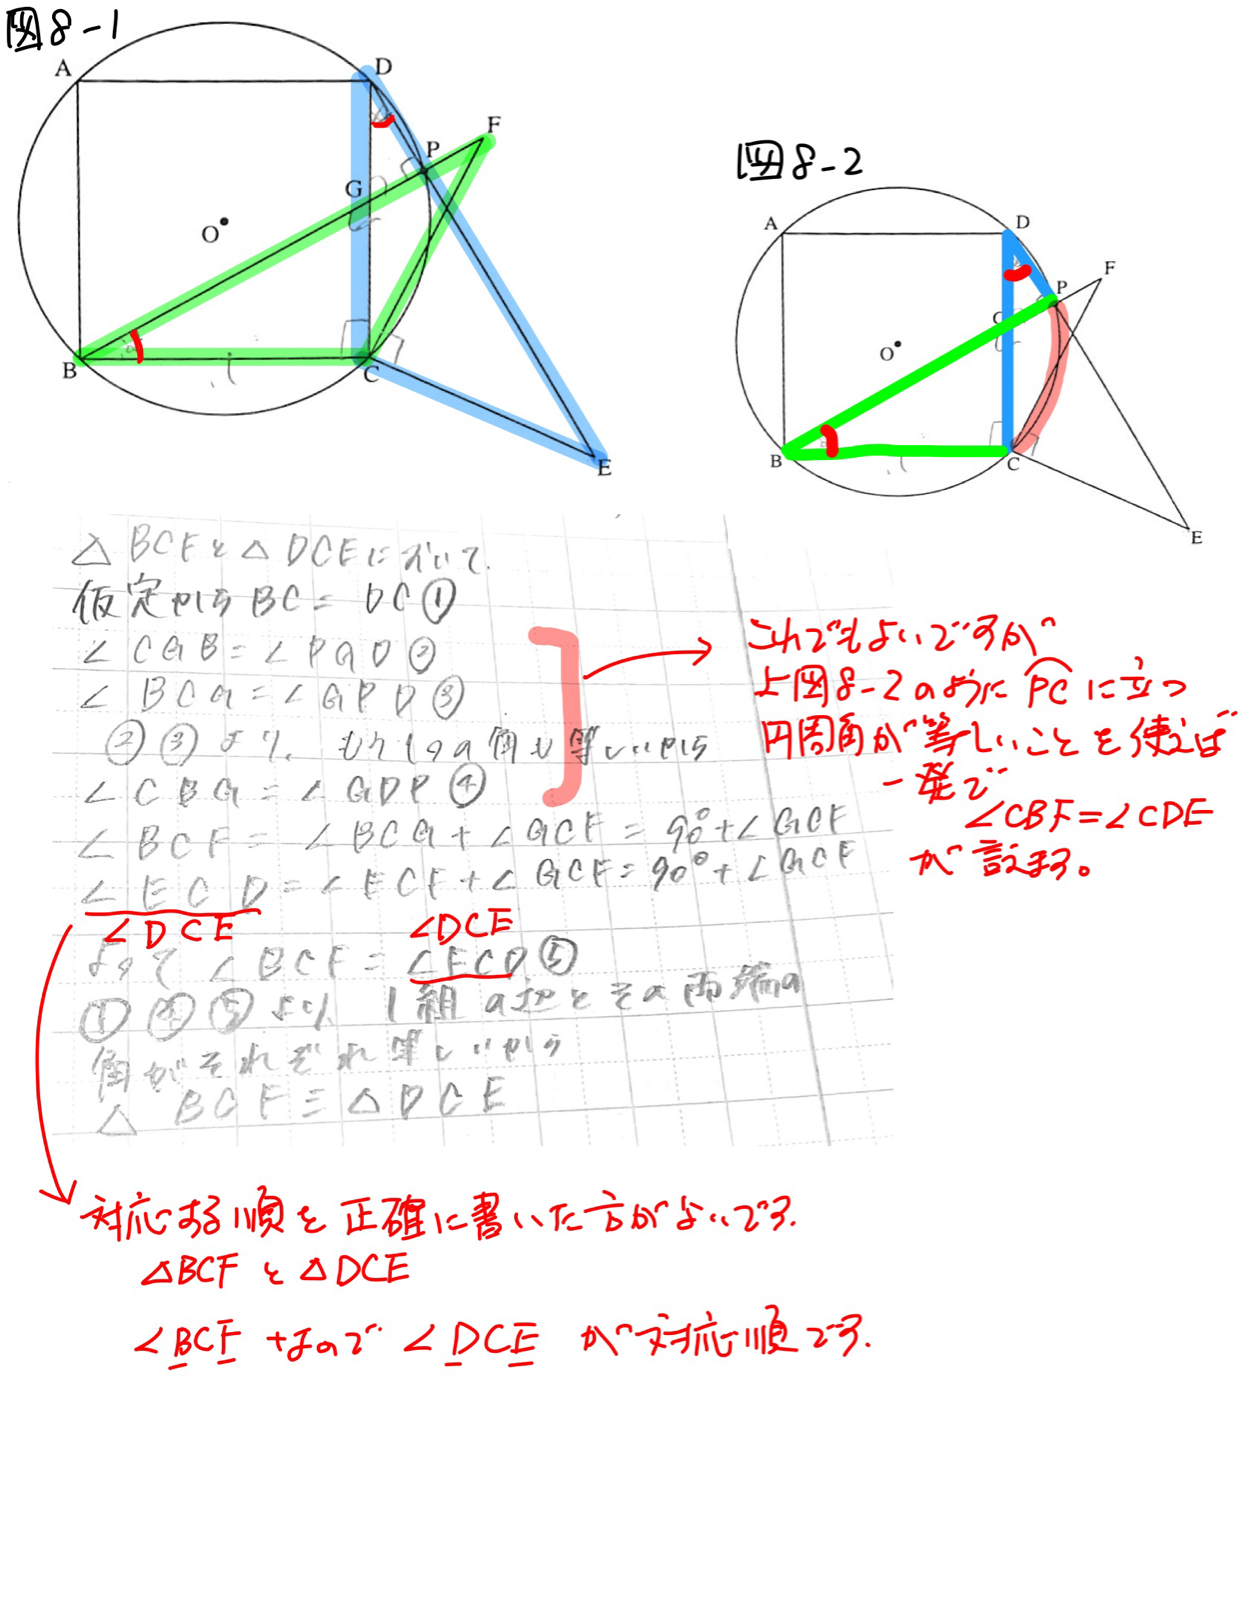 図8-1
A
D
F
P
G
O
B
C
E
図8-2
A
D
F
P
O
B
C
E
△BCFと△DCEにおいて.
仮定から BC = DC①
∠CGB=∠PGD②
∠BCG=∠GPD③
②③より、もう1つの角も等しいから
∠CBG=∠GDP④
∠BCF=∠BCG+∠GCF=90°+∠GCF
∠ECD=∠ECF+∠GCF=90°+∠GCF
∠DCE ∠DCE
よって∠BCF=∠ECD⑤
①④⑤より、1組の辺とその両端の
角がそれぞれ等しいから
△BCF≡△DCE
これでもよいですが
上図8-2のようにPCに立つ
円周角が等しいことを使えば
一発で
∠CBF=∠CDE
が言えます。
対応する順を正確に書いた方がよいです.
△BCFと△DCE
∠BCF なので ∠DCE が対応順です.